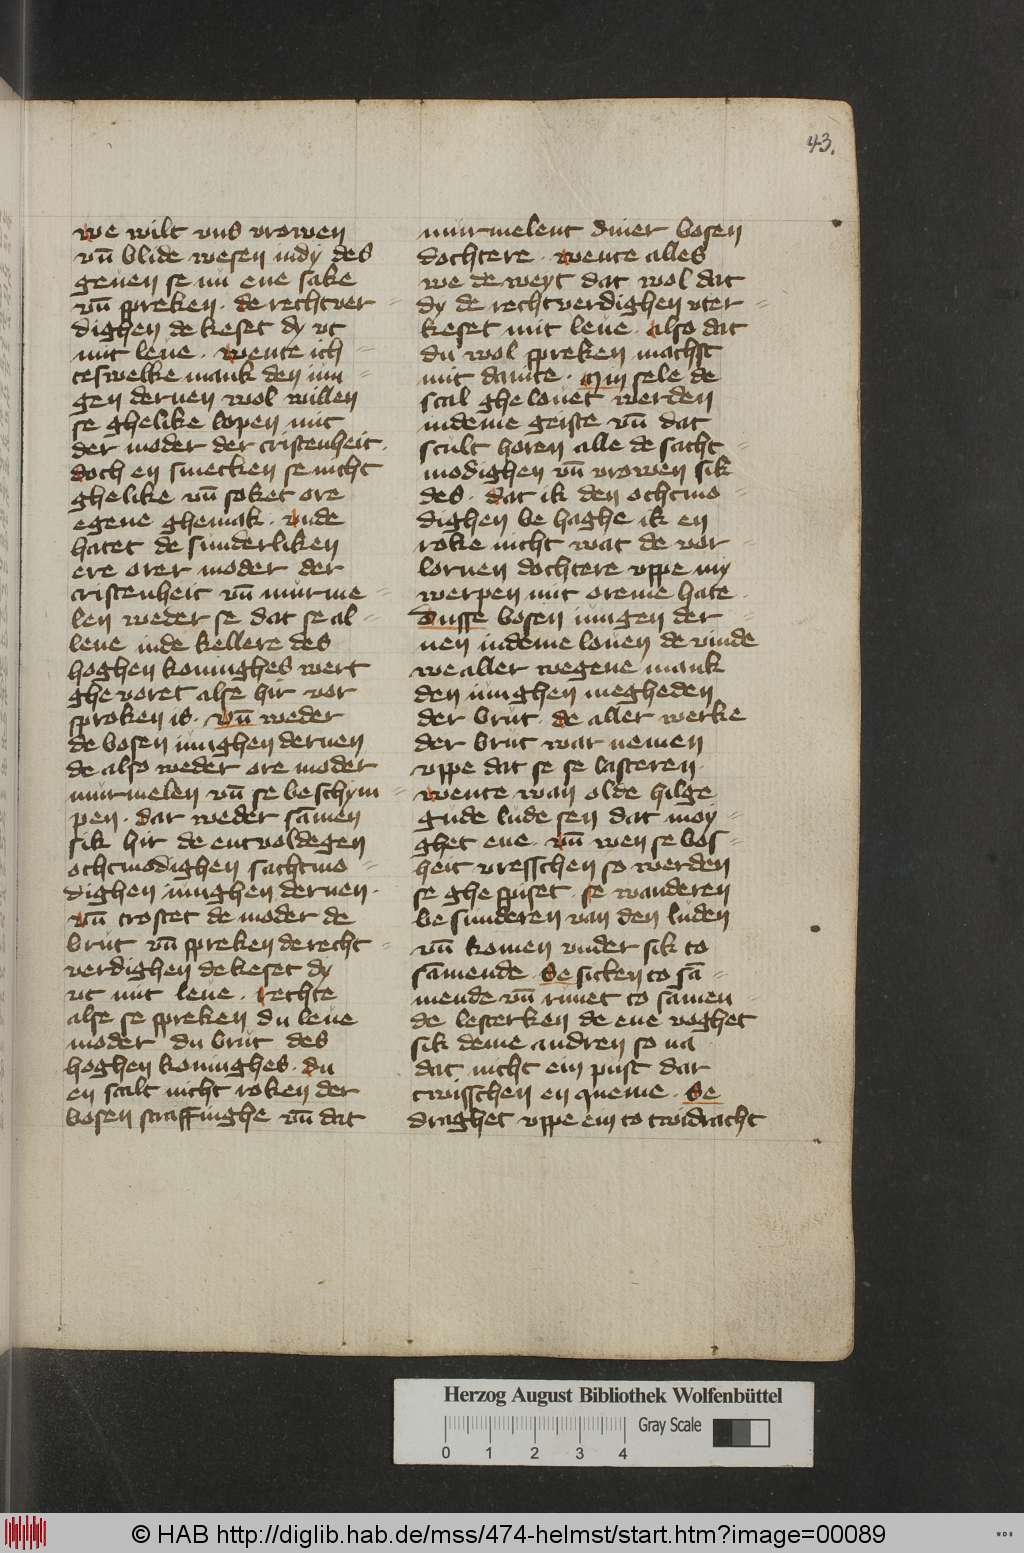 43.
we wilt vns vrowen
vn̄ blide wesen indy des
geuen se nu ene sake
vn̄ spreken · de rechtver=
dighen de keset dy vt
mit leue · wente ich=
teswelke mank den iun=
gen deruen wol willen
se ghelike lopen mit
der moder der cristenheit ·
doch en smecken se nicht
ghelike vn̄ soket ore
egene ghemak · vnde
hatet de sunderliken
ere orer moder der
cristenheit vn̄ murme=
len weder se dat se al=
lene inde kellere des
hoghen koninghes wert
ghe voret alse hir vor
sproken is · vn̄ weder
de bosen iunghen deruen
de also weder ore moder
murmelen vn̄ se beschym=
pen · dar weder sāmen
sik hir de entvoldegen
ochtmodighen sachtmo=
dighen iunghen deruen ·
vn̄ trostet de moder de
brut vn̄ spreken de recht=
verdighen de keset dy
vt mit leue · rechte
alse se spreken du leue
moder du brut des
hoghen koninghes · du
en scalt nicht roken der
bosen straffinghe vn̄ dat
murmelent diner bosen
dochtere · wente alles
we de weyt dat wol dat
dy de rechtverdighen vter=
keset mit leue · also dat
du wol spreken machst
mit dauite · Myn sele de
scal ghe louet werden
indeme geiste vn̄ dat
scult horen alle de sacht=
modighen vn̄ vrowen sik
des · dat ik den ochtmo=
dighen be haghe ik en
roke nicht wat de vor=
lornen dochtere vppe my
werpen mit oreme hate ·
Dusse bosen iungen der=
nen indeme louen de vinde
we aller wegene mank
den iunghen megheden
der brut · de aller werke
der brut war nemen
vppe dat se se lasteren ·
wente wan olde hilge
gude lude sen dat moy=
ghet ene · vn̄ wen se bos=
heit vresschen so werden
se ghe spiset · se wanderen
be sunderen van den luden
vn̄ komen vnder sik to
sāmende · Se sitten to sā=
mende vn̄ runet to sāmen=
de lesterken de ene voghet
sik deme andren so na
dat nicht ein pust dar
twisschen en queme · Se
draghet vppe ein to twidracht
Herzog August Bibliothek Wolfenbüttel
0 1 2 3 4
Gray Scale
© HAB http://diglib.hab.de/mss/474-helmst/start.htm?image=00089